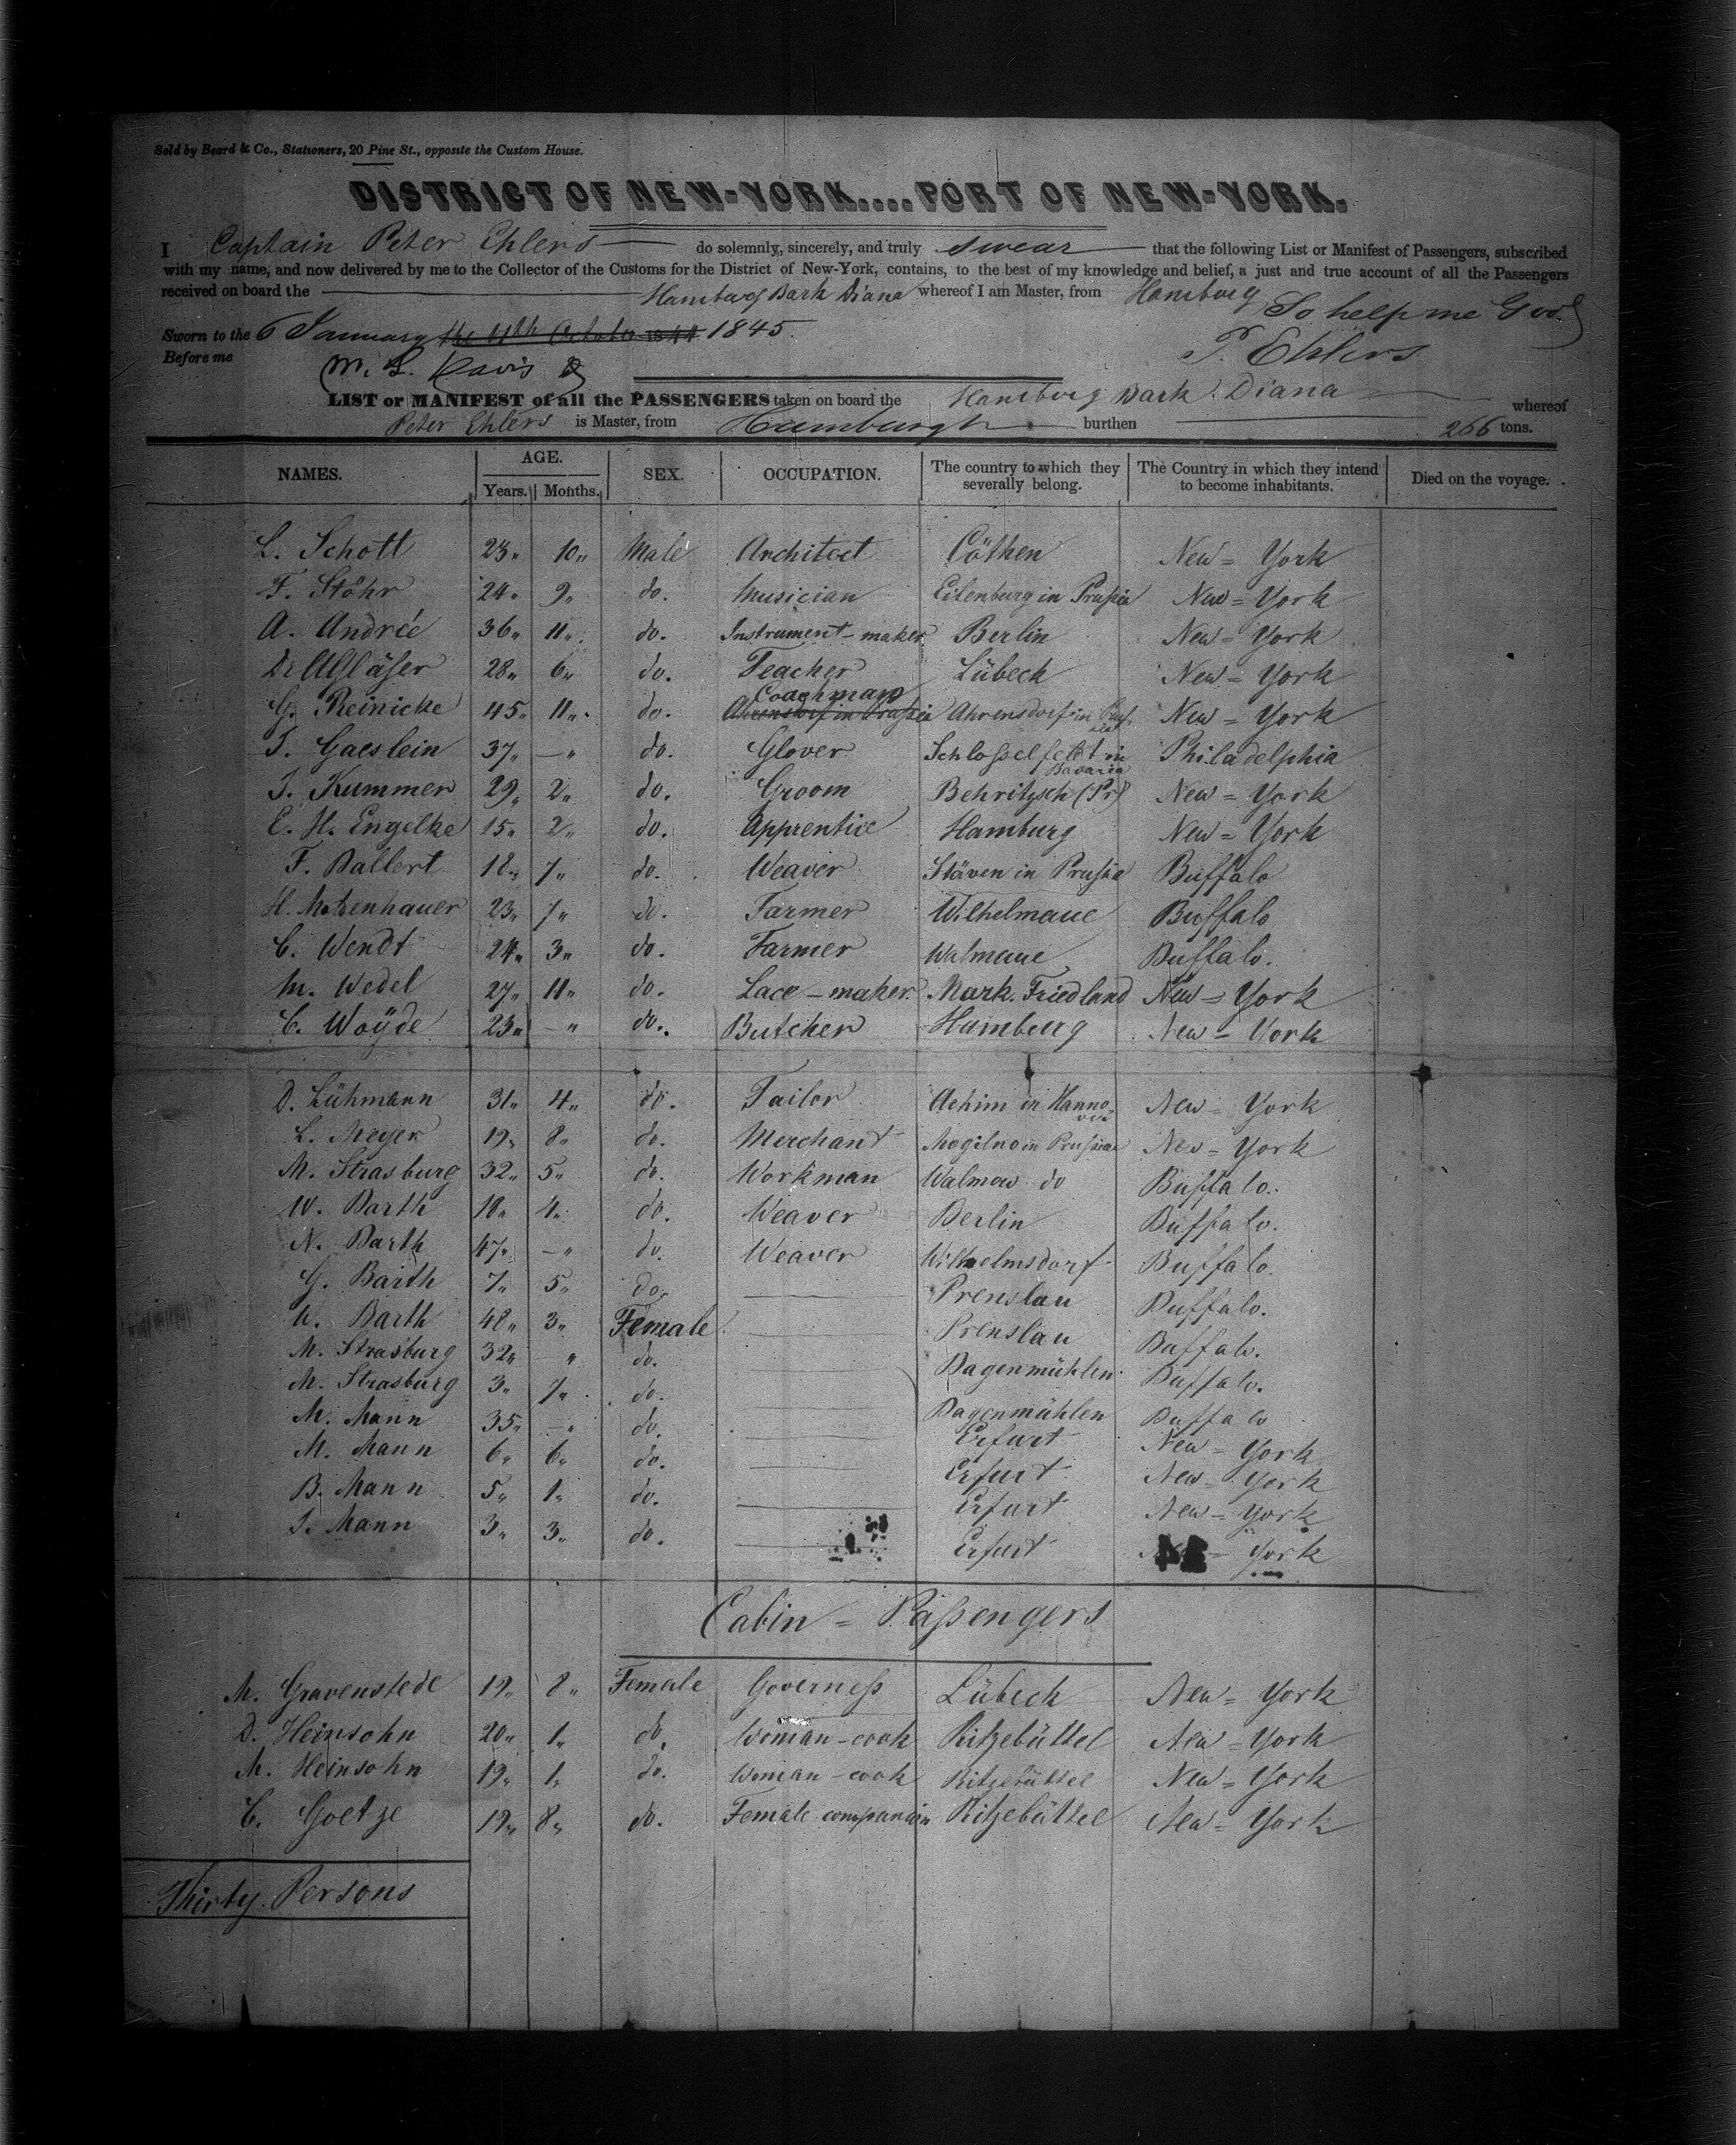 Sold by Beard & Co., Stationers, 20 Pine St., opposite the Custom House.
DISTRICT OF NEW-YORK....PORT OF NEW-YORK.
I Captain Peter Ehlers do solemnly, sincerely, and truly swear that the following List or Manifest of Passengers, subscribed
with my name, and now delivered by me to the Collector of the Customs for the District of New-York, contains, to the best of my knowledge and belief, a just and true account of all the Passengers
received on board the Hamburg Bark Diana whereof I am Master, from Hamburg So help me God
Sworn to the 6 January the 11th October 1844 1845.
Before me P. Ehlers
M. L. Davis
LIST or MANIFEST of all the PASSENGERS taken on board the Hamburg Bark Diana whereof
Peter Ehlers is Master, from Hamburgh burthen 266 tons.
NAMES. AGE. Years. Months. SEX. OCCUPATION. The country to which they severally belong. The Country in which they intend to become inhabitants. Died on the voyage.
L. Schott 23 " 10 " Male Architect Cöthen New = York
F. Stöhr 24 " 9 " do. Musician Eilenburg in Prußia New = York
A. Andrée 36 " 11 " do. Instrument - maker Berlin New = York
Dr 28 " 6 " do. Teacher Lübeck New = York
Coachman
G. Reinicke 45 " 11 " do. Ahrensdorf in Prußia Ahrensdorf in New = York
J. Gaeslein 37 " — " do. Glover Schloßelfeldt in Bavaria Philadelphia
J. Kummer 29 " 2 " do. Groom Behritzsch (Pr) New = York
E. H. Engelke 15 " 2 " do. Apprentice Hamburg New = York
F. Ballert 18 " 7 " do. Weaver Stäven in Prußia Buffalo
H. Motzenhauer 23 " 7 " do. Farmer Wilhelmaue Buffalo
C. Wendt 24 " 3 " do. Farmer Walmaue Buffalo.
M. Wedel 27 " 11 " do. Lace - maker. Mark. Friedland New = York
C. Woÿde 23 " — " do. Butcher Hamburg New = York
D. Lühmann 31 " 4 " do. Tailor Achim in Hannover New = York
L. Meyer 19 " 8 " do. Merchant Mogilno in Prußia New = York
M. Strasburg 32 " 5 " do. Workman Walmow do Buffalo.
W. Barth 18 " 4 " do. Weaver Berlin Buffalo.
N. Barth 47 " — " do. Weaver Wilhelmsdorf Buffalo.
G. Barth 7 " 5 " do. Prenslau Buffalo.
W. Barth 48 " 3 " Female Prenslau Buffalo.
M. Strasburg 32 " " do. Bagenmühlen Buffalo.
M. Strasburg 3 " 7 " do. Bagenmühlen Buffalo
M. Mann 35 " — " do. Erfurt New = York
M. Mann 6 " 6 " do. Erfurt New = York
B. Mann 5 " 1 " do. Erfurt New = York
J. Mann 3 " 3 " do. Erfurt York
Cabin = Paßengers
M. Gravenstede 19 " 8 " Female Governeß Lübeck New = York
D. Heinsohn 20 " 1 " do. Woman - cook Ritzebüttel New = York
M. Heinsohn 19 " 1 " do. Woman - cook Ritzebüttel New = York
C. Goetze 19 " 8 " do. Female companion Ritzebüttel New = York
Thirty Persons